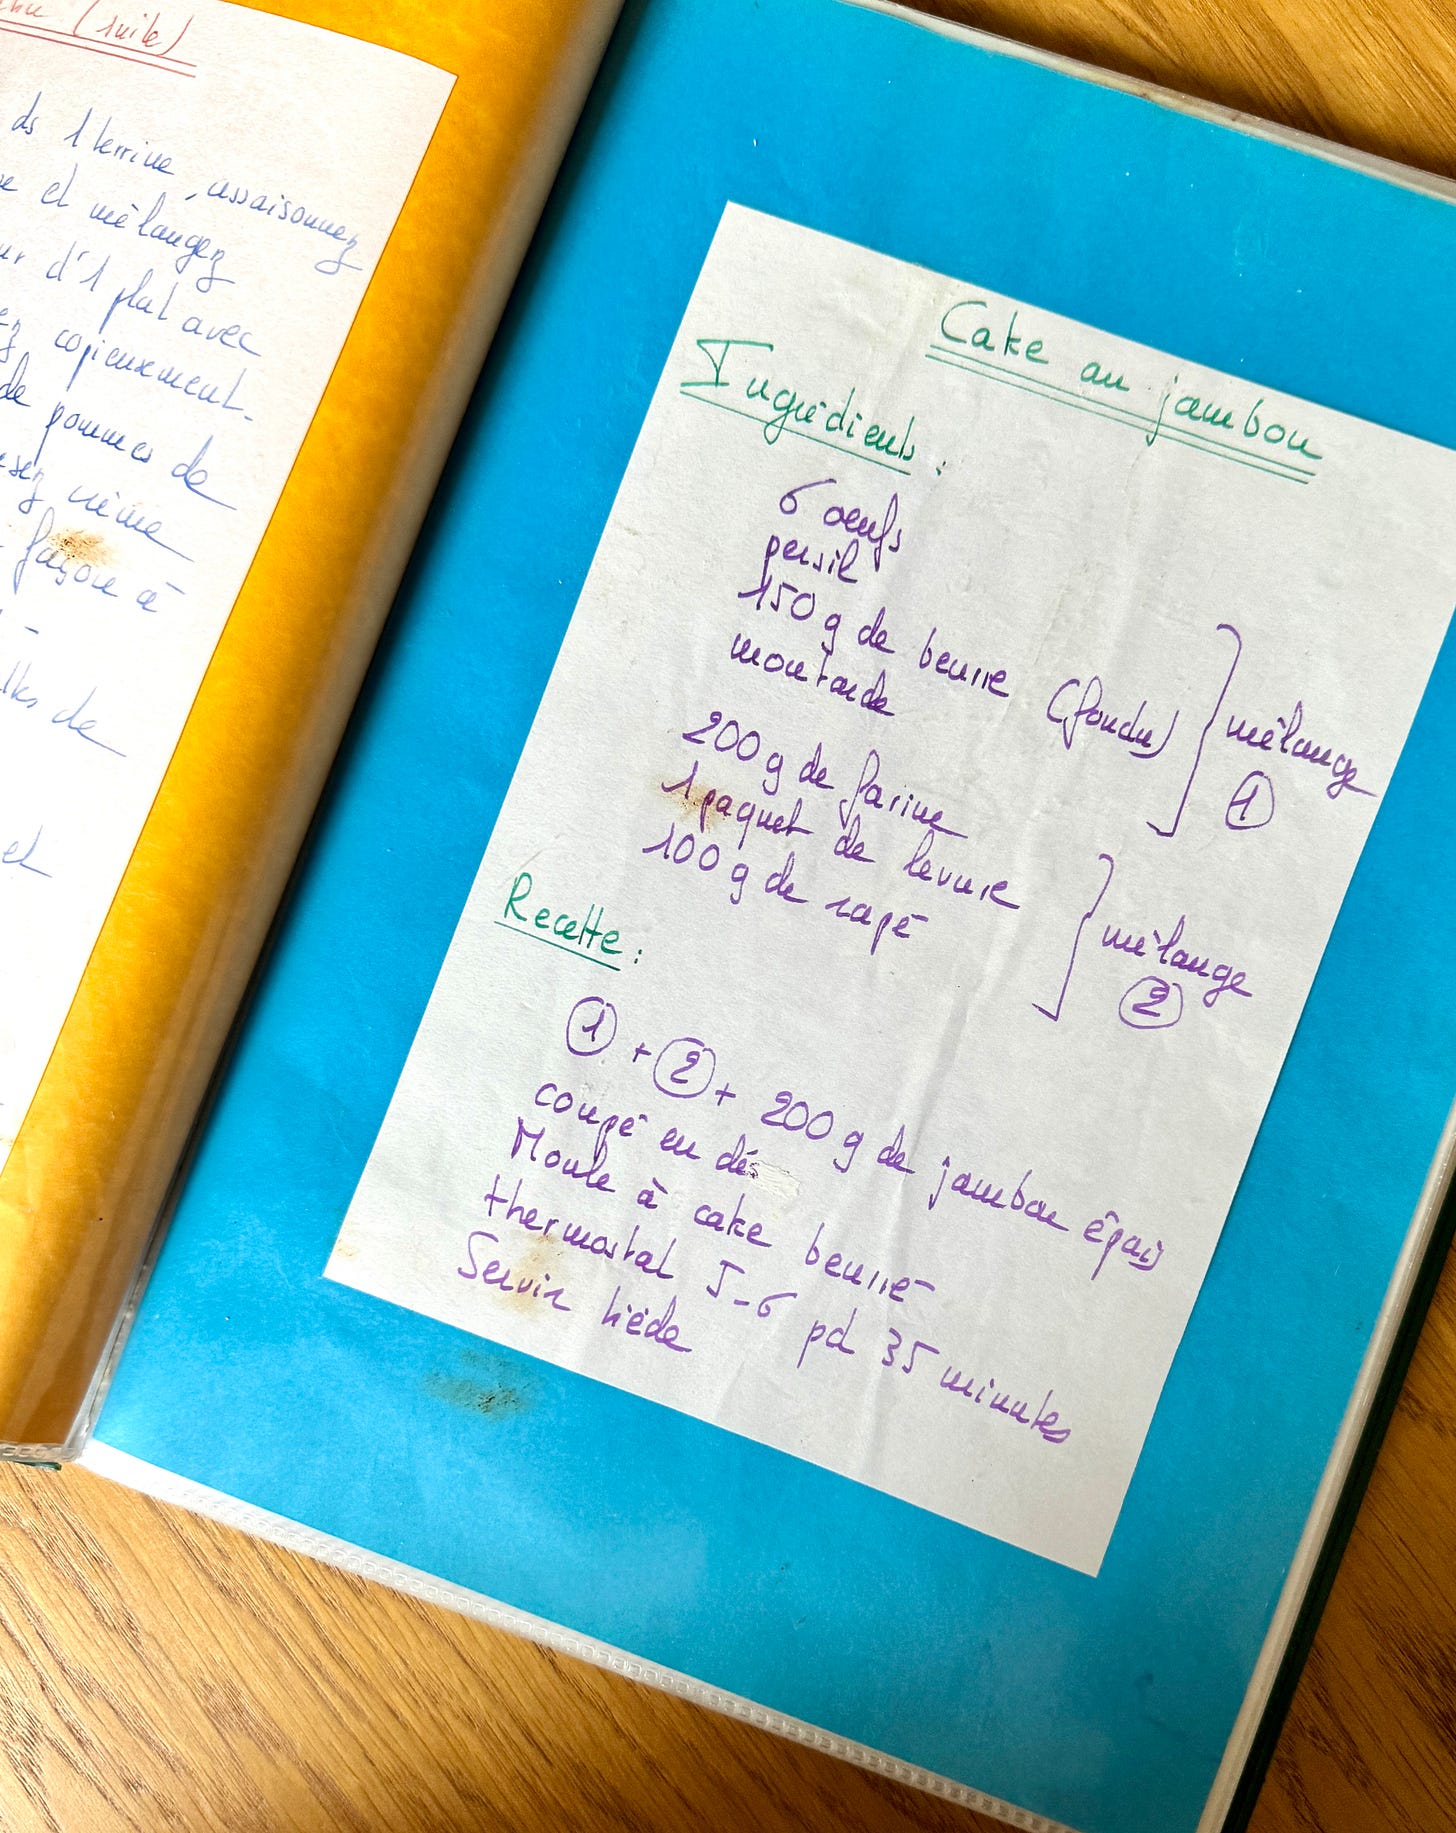 (suite)
ds 1 terrine, assaisonnez
et mélangez
d'1 plat avec
copieusement.
de pommes de
même
façon à
-
de
et
Cake au jambon
Ingrédients :
6 oeufs
persil
150 g de beurre (fondu)
moutarde
mélange
1
200 g de farine
1 paquet de levure
100 g de rapé
mélange
2
Recette :
1 + 2 + 200 g de jambon épais
coupé en dés
Moule à cake beurré
thermostat 5-6 pd 35 minutes
Servir tiède